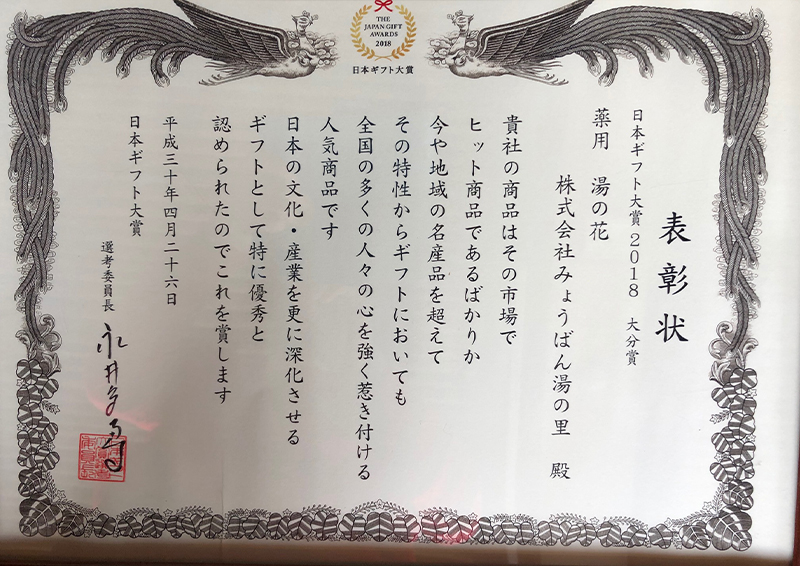 THE
JAPAN GIFT
AWARDS
2018
日本ギフト大賞
表彰状
日本ギフト大賞2018 大分賞
薬用 湯の花
株式会社みょうばん湯の里 殿
貴社の商品はその市場で
ヒット商品であるばかりか
今や地域の名産品を超えて
その特性からギフトにおいても
全国の多くの人々の心を強く惹き付ける
人気商品です
日本の文化・産業を更に深化させる
ギフトとして特に優秀と
認められたのでこれを賞します
平成三十年四月二十六日
日本ギフト大賞
選考委員長